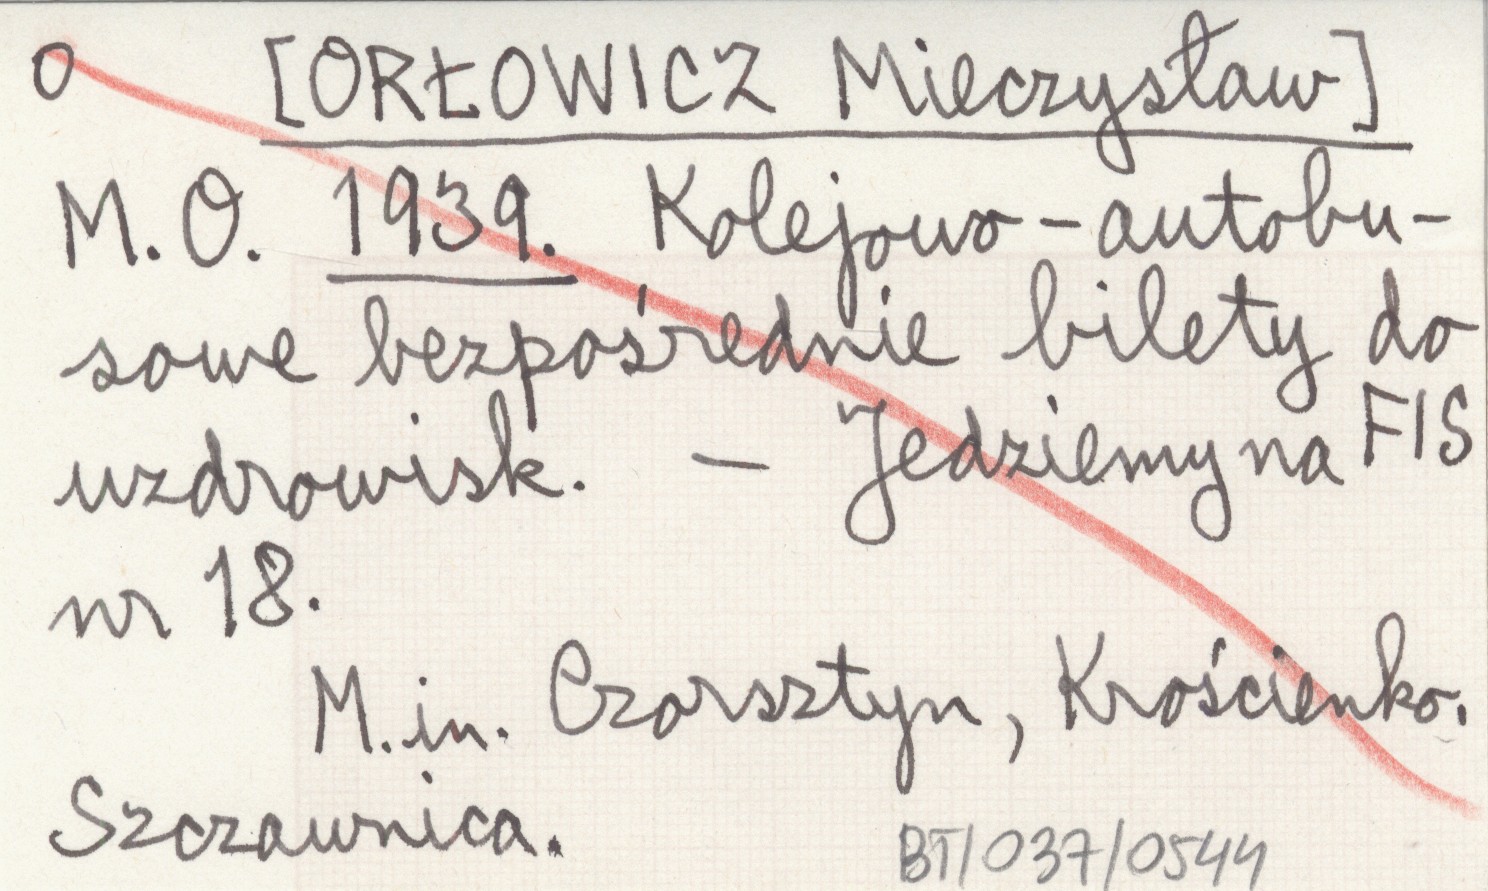 o [ORŁOWICZ Mieczysław]
M.O. 1939. Kolejowo-autobu-
sowe bezpośrednie bilety do
uzdrowisk. — Jedziemy na FIS
nr 18.
M.in. Czorsztyn, Krościenko.
Szczawnica.
BT/037/0544